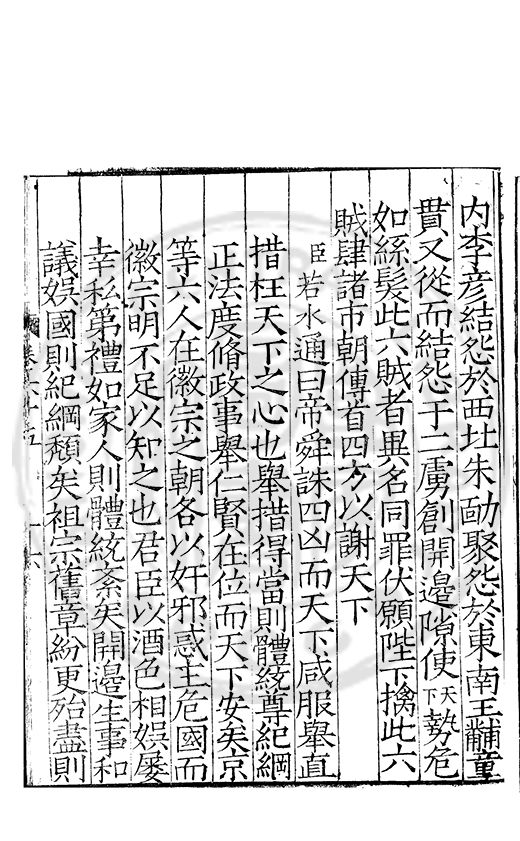 内李彦結怨於西北朱勔聚怨於東南王黼童
貫又從而結怨于二虜創開邊隙使天下勢危
如絲髮此六賊者異名同罪伏願陛下擒此六
賊肆諸市朝傳首四方以謝天下
臣若水通曰帝舜誅四凶而天下咸服舉直
措枉天下之心也舉措得當則體統尊紀綱
正法度脩政事舉仁賢在位而天下安矣京
等六人在徽宗之朝各以奸邪惑主危國而
徽宗明不足以知之也君臣以酒色相娛屡
幸私第禮如家人則體統紊矣開邊生事和
議娛國則紀綱頽矣祖宗舊章紛更殆盡則
卷六十五